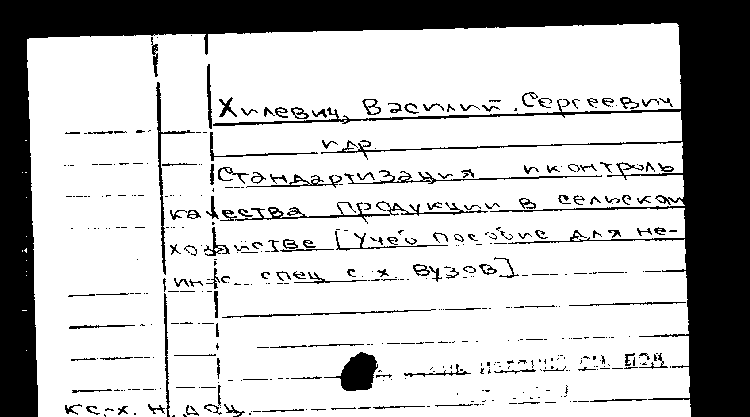 Хилевич, Василий Сергеевич
и др
Стандартизация и контроль
качества продукции в сельском
хозяйстве [Учеб пособие для не-
инж. спец с х вузов]
см. под
к с.-х. н. доц.